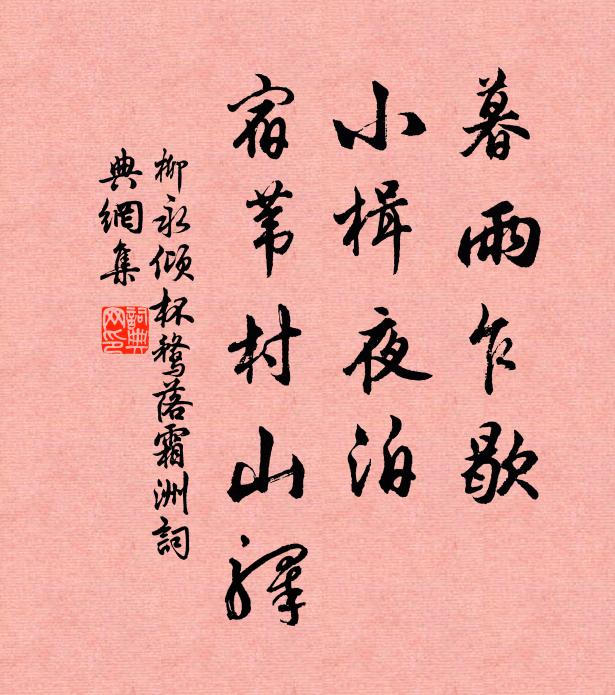 暮雨乍歇
小楫夜泊
宿苇村山驿
柳永倾杯鹜落霜洲词
典網集
詞典网印